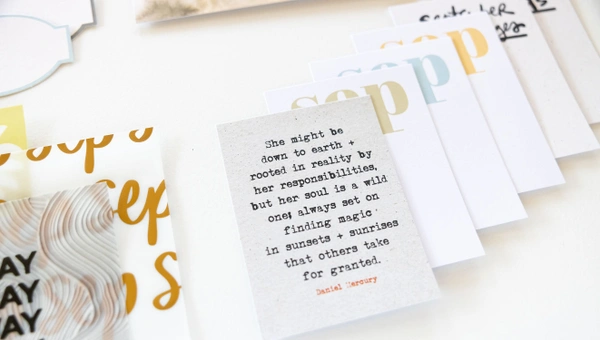 september
sep
sep
sep
She might be
down to earth +
rooted in reality by
her responsibilities,
but her soul is a wild
one; always set on
finding magic
in sunsets + sunrises
that others take
for granted.
Daniel Mercury
sep